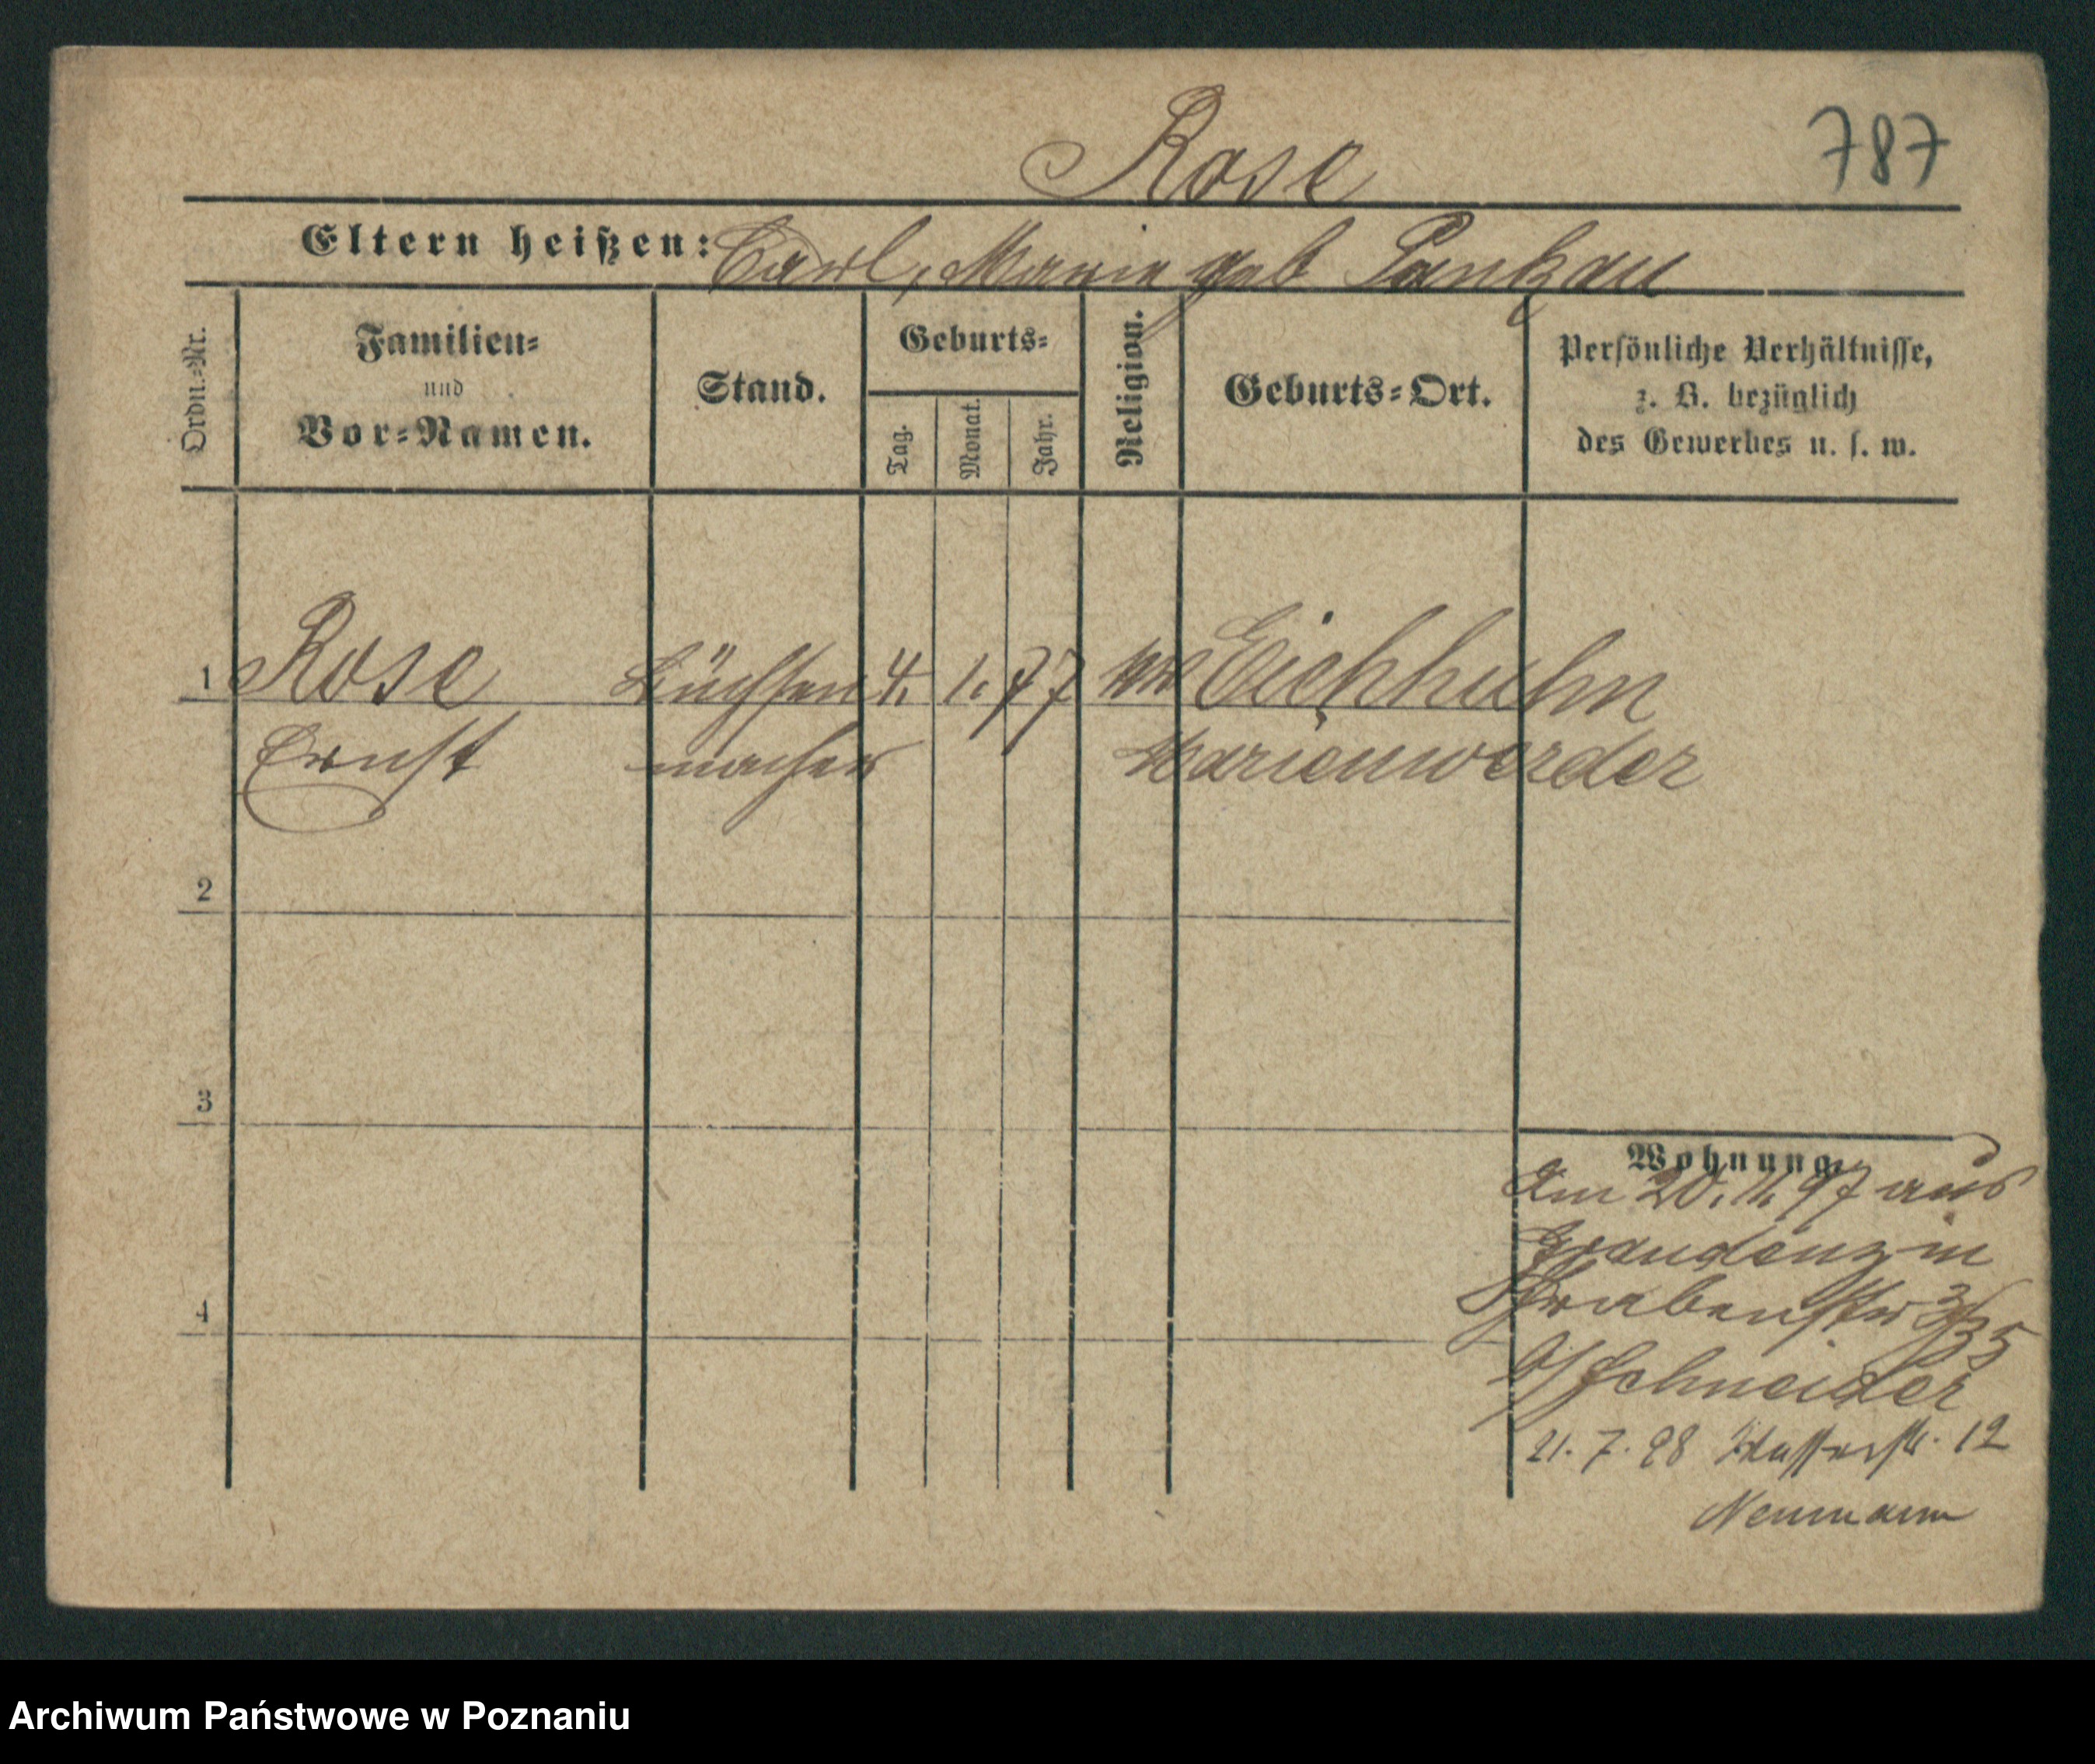 Rose
787
Eltern heißen: Carl, Marie geb Pankau
Ordn.-Nr.
Familien-
und
Vor-Namen.
Stand.
Geburts-
Tag.
Monat.
Jahr.
Religion.
Geburts-Ort.
Persönliche Verhältnisse,
z. B. bezüglich
des Gewerbes u. s. w.
1 Rose Büchsen 4. 1. 77 Eichhuhn
Ernst macher Marienwerder
2
3
4
Wohnung.
Am 20. 11. 97 aus
Graudenz in
Grabenstr 35
b/ Schneider
21. 7. 98 Wasserstr. 12
Neumann
Archiwum Państwowe w Poznaniu